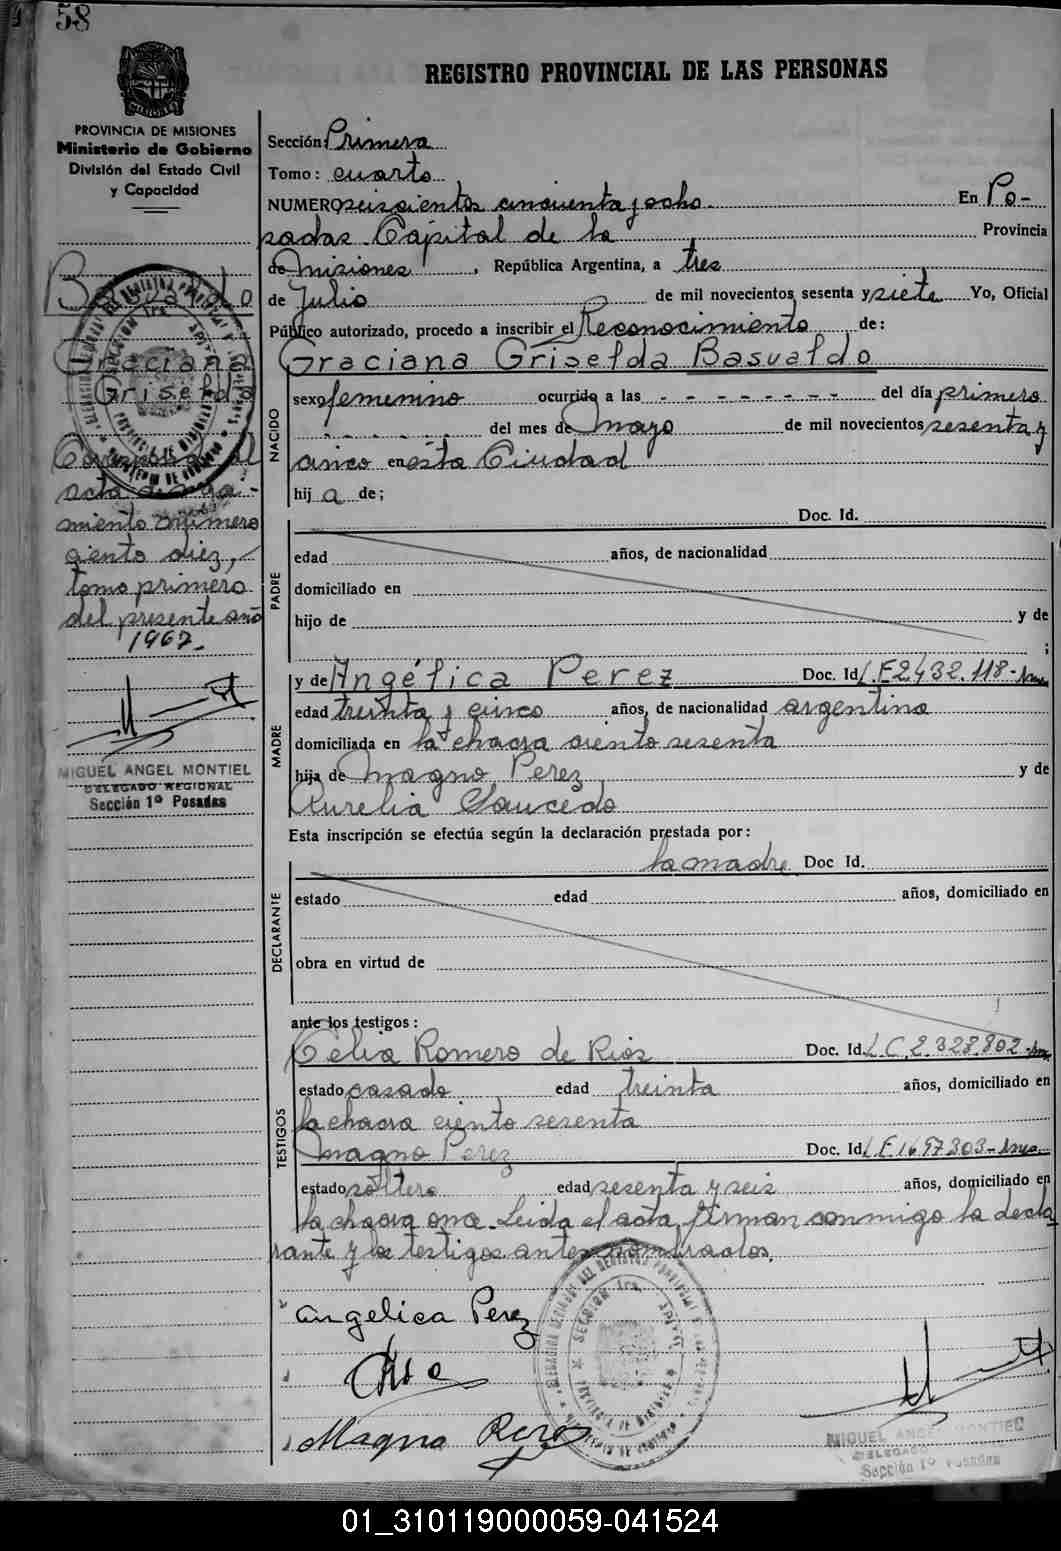 58
REGISTRO PROVINCIAL DE LAS PERSONAS
PROVINCIA DE MISIONES
Ministerio de Gobierno
División del Estado Civil
y Capacidad
Basualdo
Graciana
Griselda
Corresponde al
acta de
miento número
ciento diez,
tomo primero
del presente año
1967.-
MIGUEL ANGEL MONTIEL
DELEGADO REGIONAL
Sección 1º Posadas
Sección: Primera
Tomo: cuarto
NUMERO seiscientos cincuenta y ocho En Po-
sadas Capital de la Provincia
de Misiones, República Argentina, a tres
de Julio de mil novecientos sesenta y siete Yo, Oficial
Público autorizado, procedo a inscribir el Reconocimiento de:
Graciana Griselda Basualdo
NACIDO
sexo femenino ocurrido a las - - - - - - - - del día primero
- - - - - - del mes de Mayo de mil novecientos sesenta y
cinco en ésta Ciudad
hij a de;
Doc. Id.
PADRE
edad años, de nacionalidad
domiciliado en
hijo de y de
;
MADRE
y de Angélica Perez Doc. Id L.E 2432.118-
edad treinta y cinco años, de nacionalidad argentina
domiciliada en la chacra ciento sesenta
hija de Magno Perez y de
Aurelia Saucedo
Esta inscripción se efectúa según la declaración prestada por:
la madre Doc Id.
DECLARANTE
estado edad años, domiciliado en
obra en virtud de
ante los testigos:
TESTIGOS
Celia Romero de Rios Doc. Id L.C.2.328.802-
estado casada edad treinta años, domiciliado en
la chacra ciento sesenta
Magno Perez Doc. Id L.E 1697303-
estado soltero edad sesenta y seis años, domiciliado en
la chacra once. Leída el acta, firman conmigo la decla
rante y los testigos antes nombrados.
Angelica Perez
Magno Perez
SECCION 1ra
MIGUEL ANGEL MONTIEL
DELEGADO
Sección 1º Posadas
01_310119000059-041524